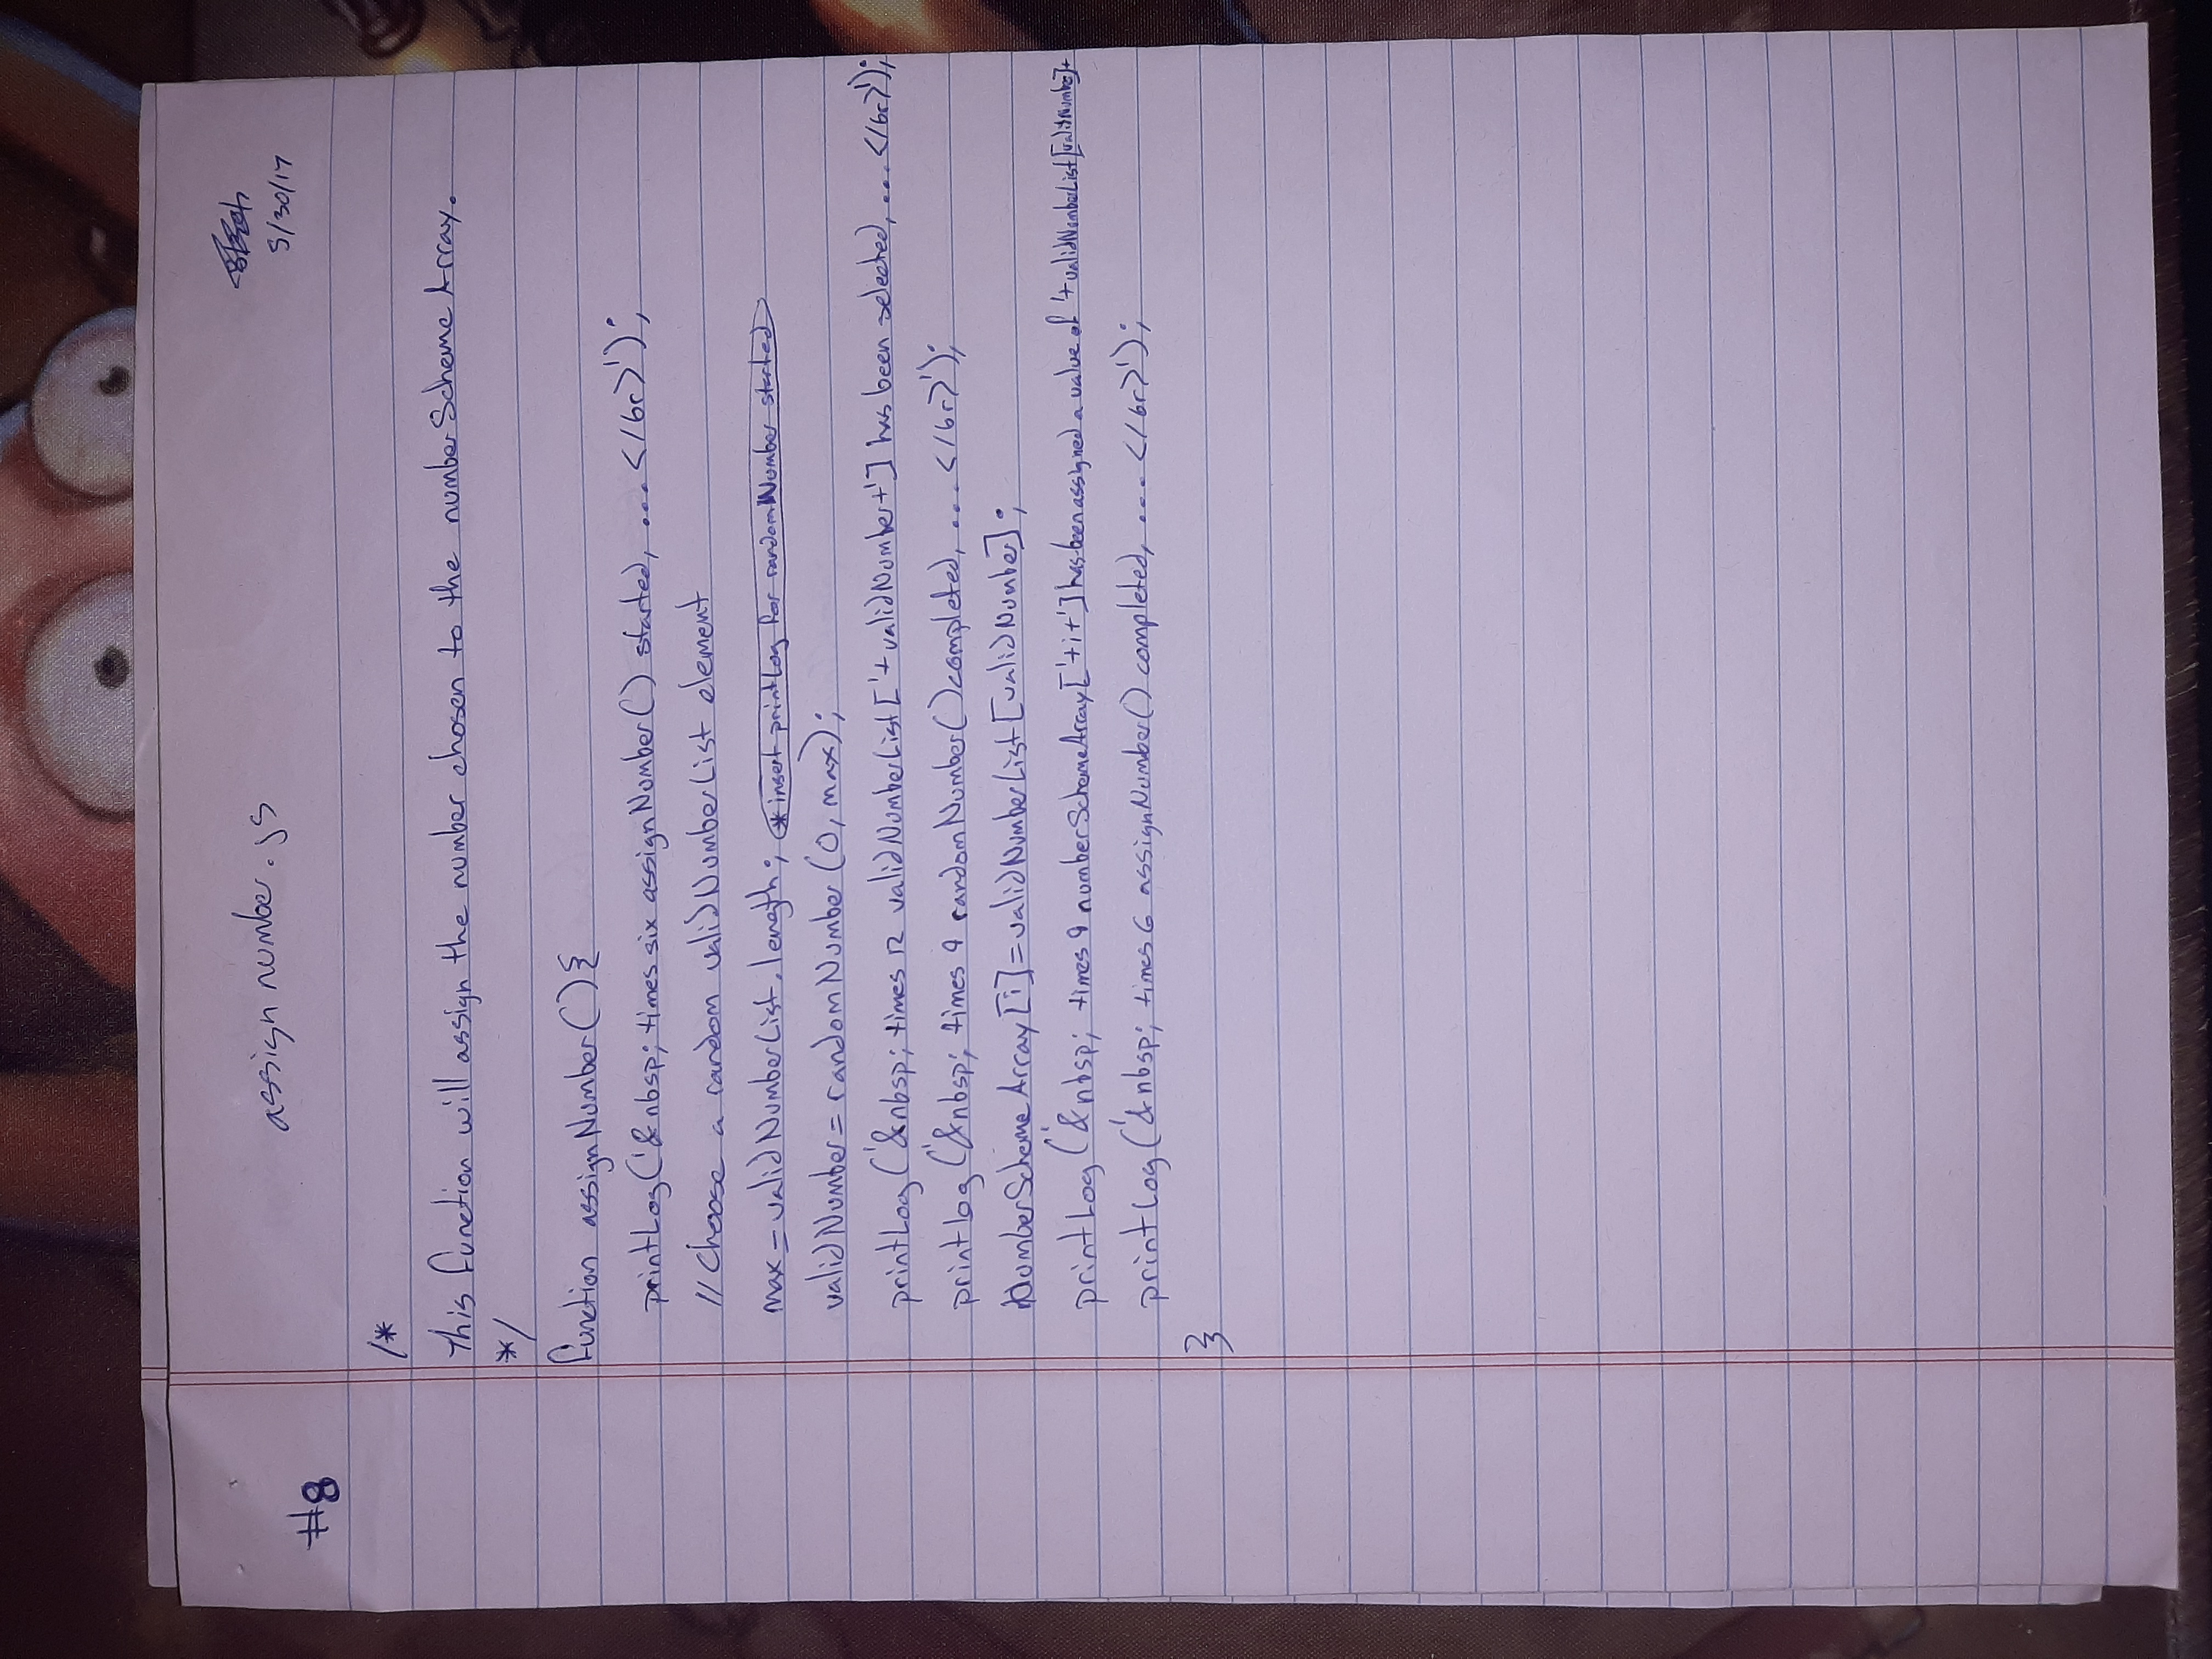 assign number.js
5/30/17
#8
/*
This function will assign the number chosen to the numberSchemeArray.
*/
function assignNumber(){
printLog('&nbsp; times six assignNumber() started, ... </br>');
// Choose a random validNumberList element
max = validNumberList.length; * insert printLog for randomNumber started
validNumber = randomNumber(0, max);
printLog('&nbsp; times 12 validNumberList['+validNumber+'] has been selected, ... </br>');
printlog('&nbsp; times 9 randomNumber() completed, ... </br>');
NumberSchemeArray[i] = validNumberList[validNumber];
printLog('&nbsp; times 9 numberSchemeArray['+i+'] has been assigned a value of '+validNumberList[validNumber]+
printLog('&nbsp; times 6 assignNumber() completed, ... </br>');
}